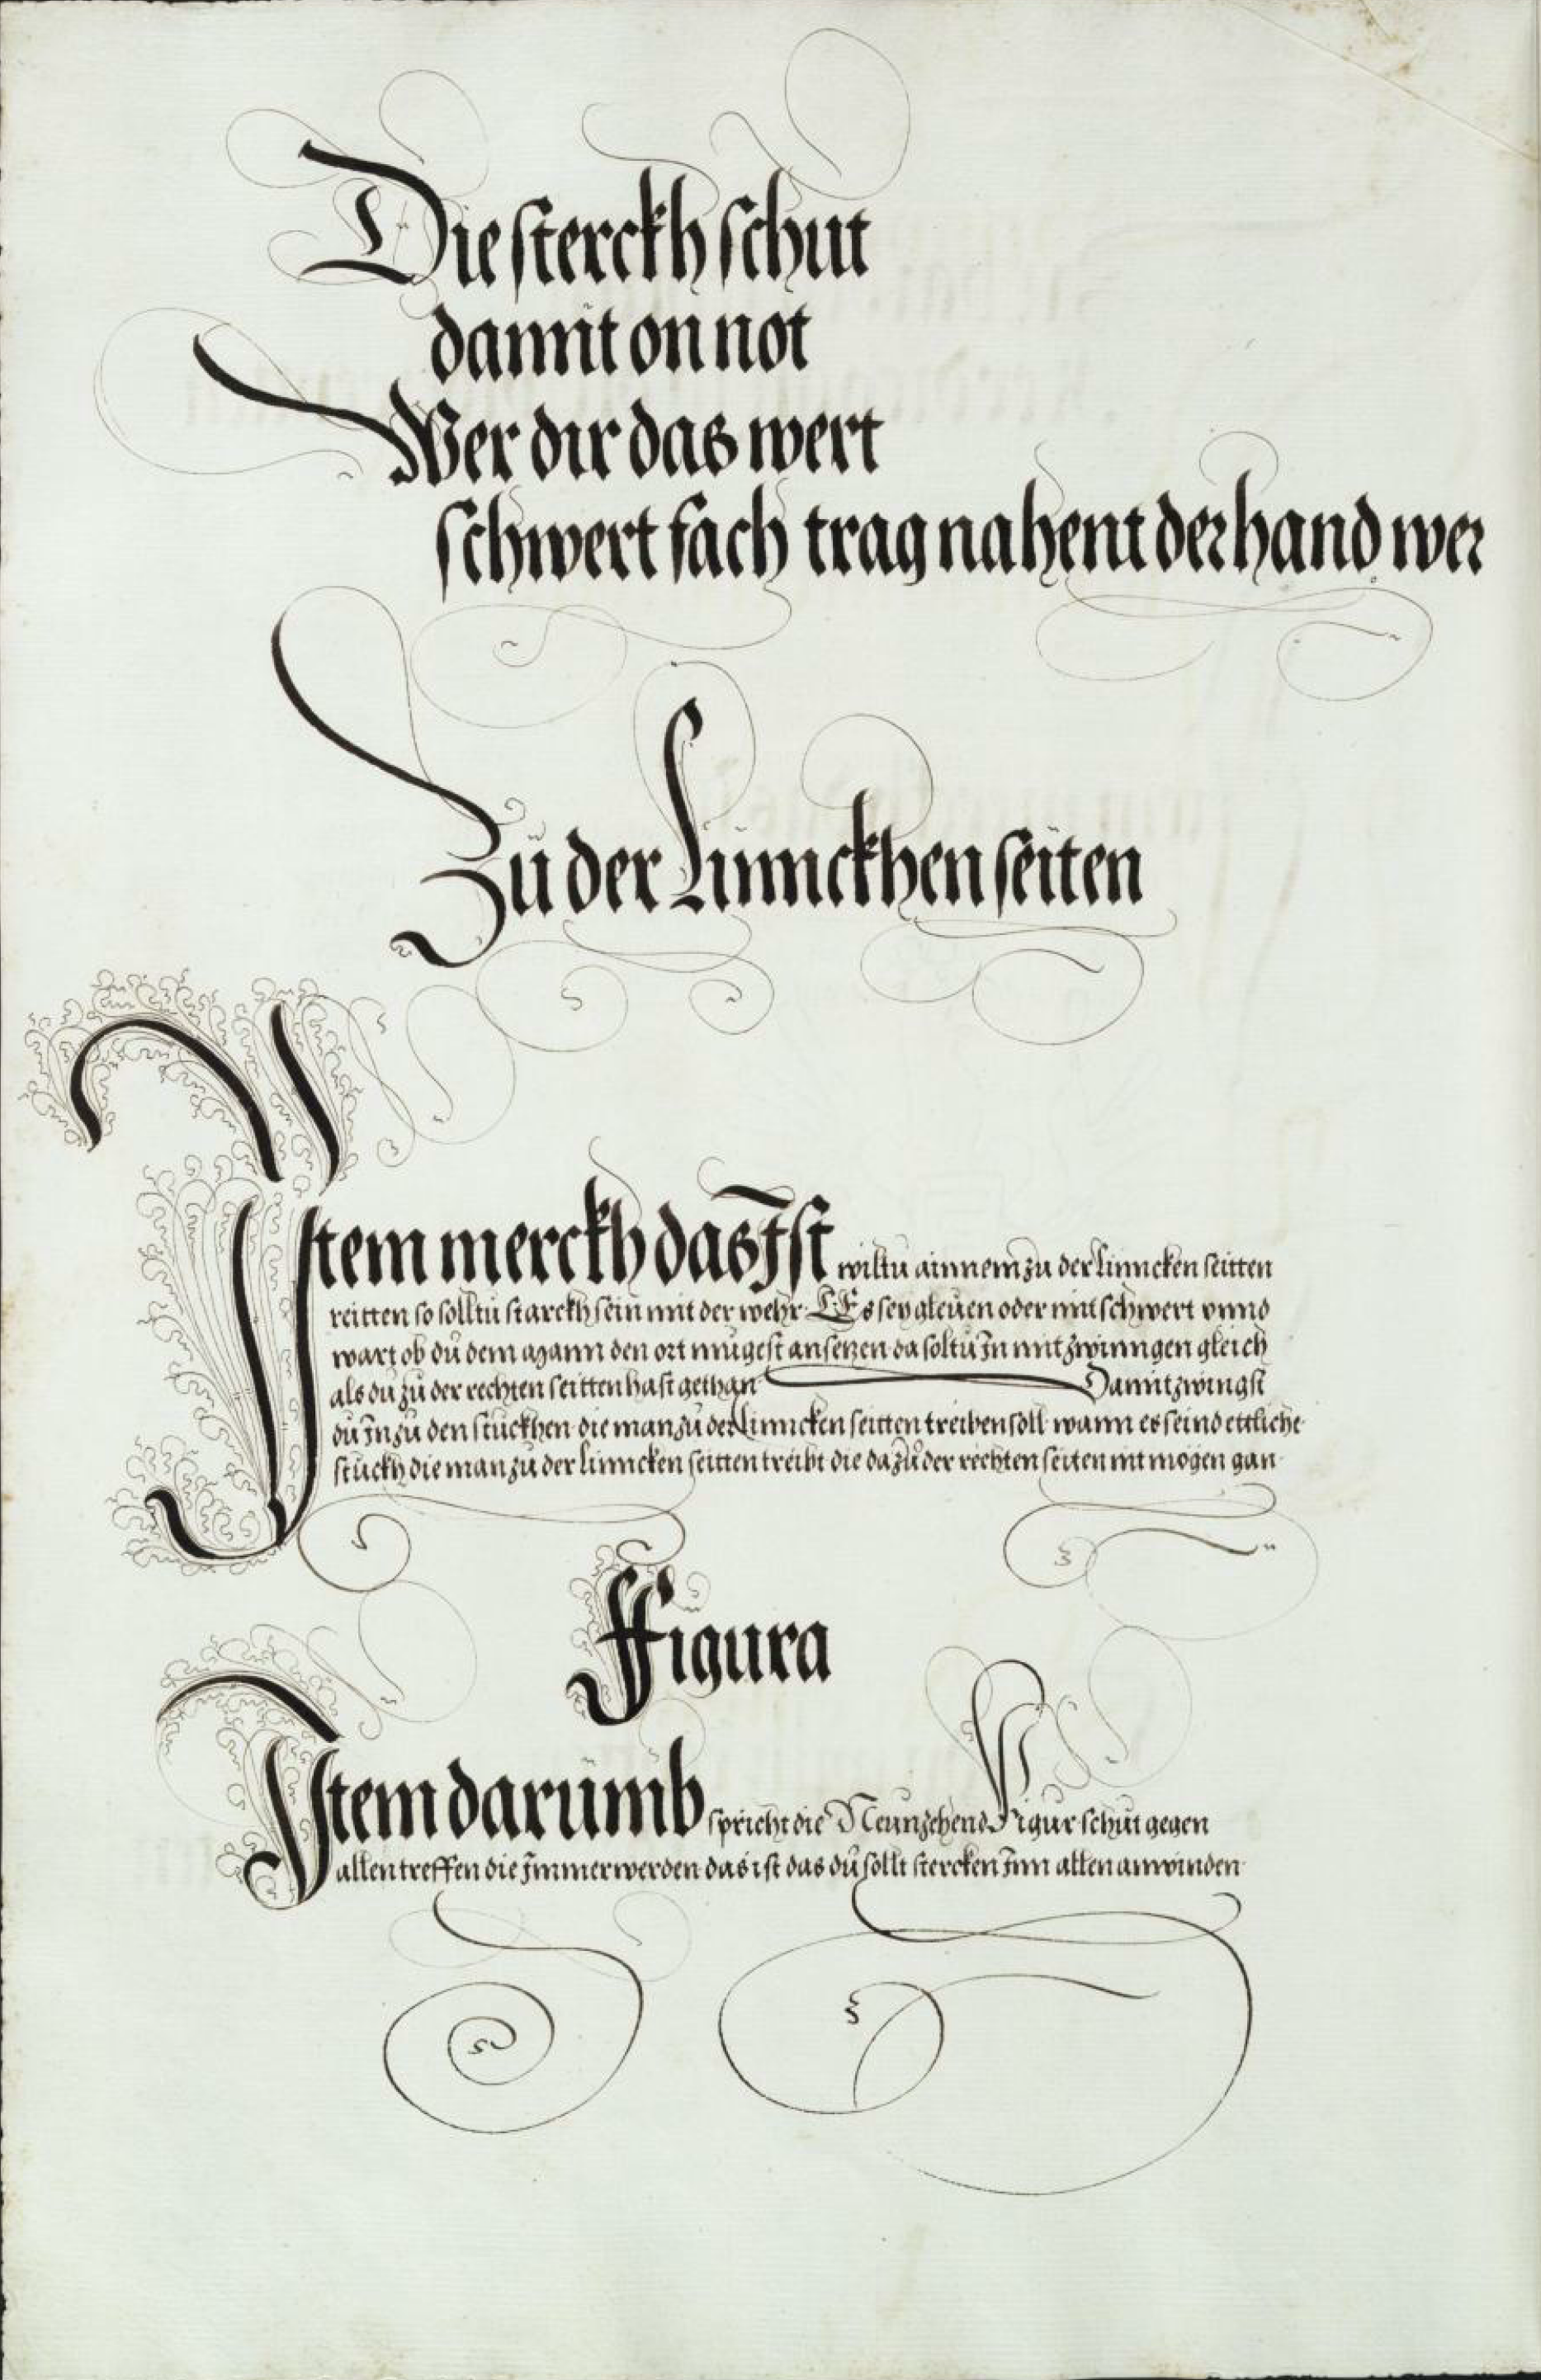 Die sterckh schut
damit on not
Wer dir das wert
schwert fach trag nahent der hand wer
Zü der Linnckhen seiten
Item merckh das Ist wiltu ainnem zu der linncken seitten
reitten so solltu starckh sein mit der wehr Es sey gleuen oder mit schwert vnnd
wart ob du dem mann den ort mugest ansetzen da soltu In mit zwinngen gleich
als du zu der rechten seitten hast gethan Damit zwingst
du In zu den stuckhen die man zu der Linncken seitten treiben soll wann es seind ettliche
stuckh die man zu der linncken seitten treibt die da zu der rechten seiten nit mögen gan
Figura
Item darumb spricht die Neunzehend Figur schut gegen
allen treffen die Immer werden das ist das dü sollt stercken Inn allen anwinden